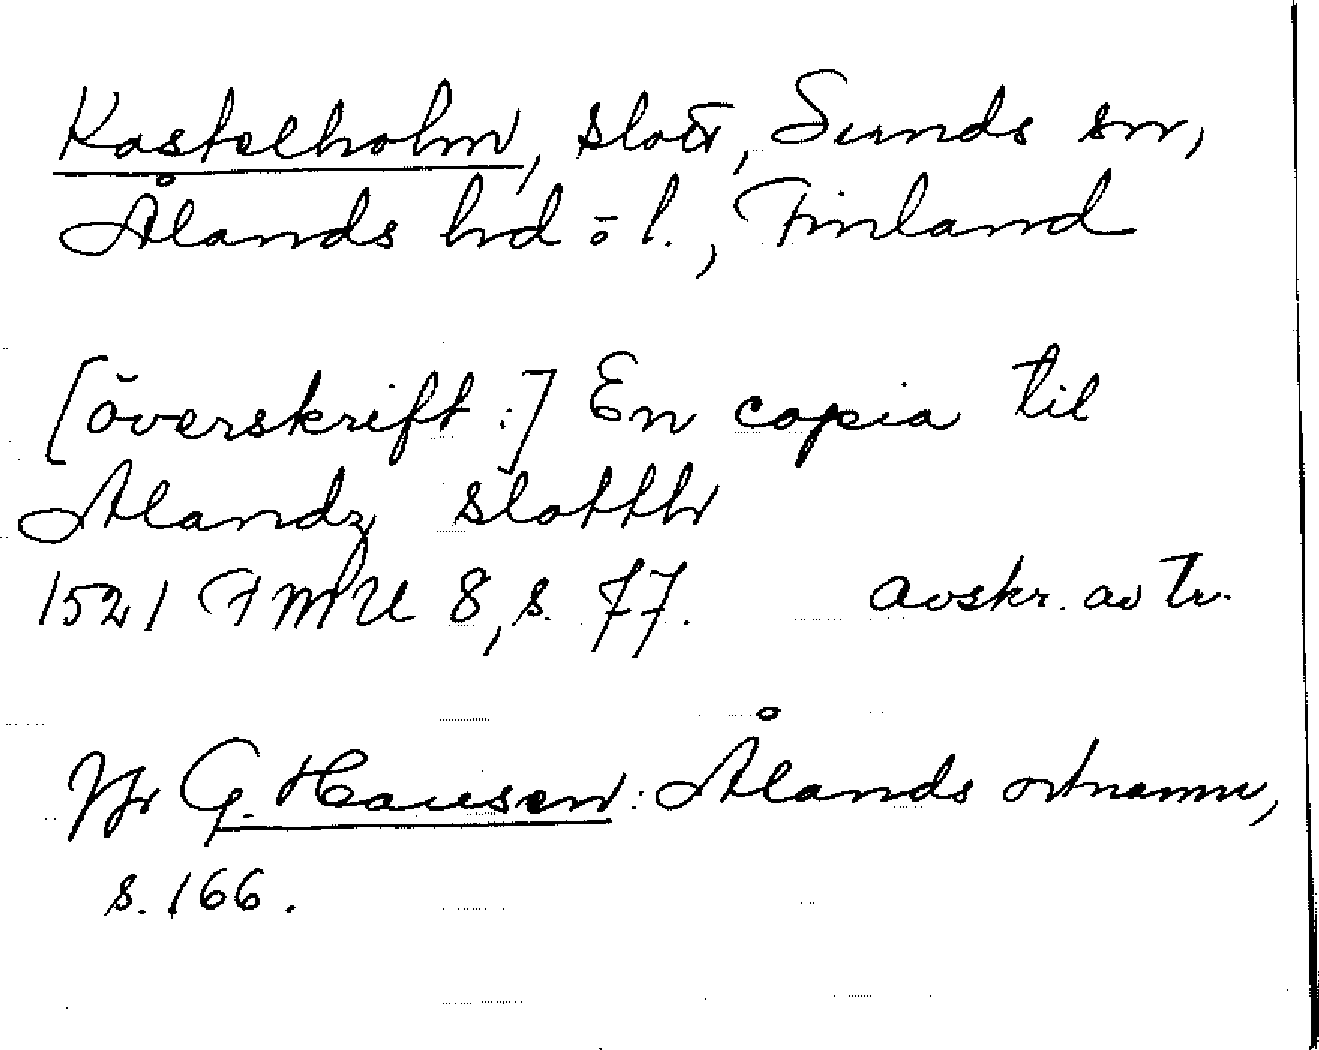 Kastelholm, slott, Sunds sn,
Ålands hd o l., Finland
[överskrift:] En copia til
Alandz slotth
1521 FMU 8, s. 77. avskr. av tr.
Jfr G. Hausen: Ålands ortnamn,
s. 166.